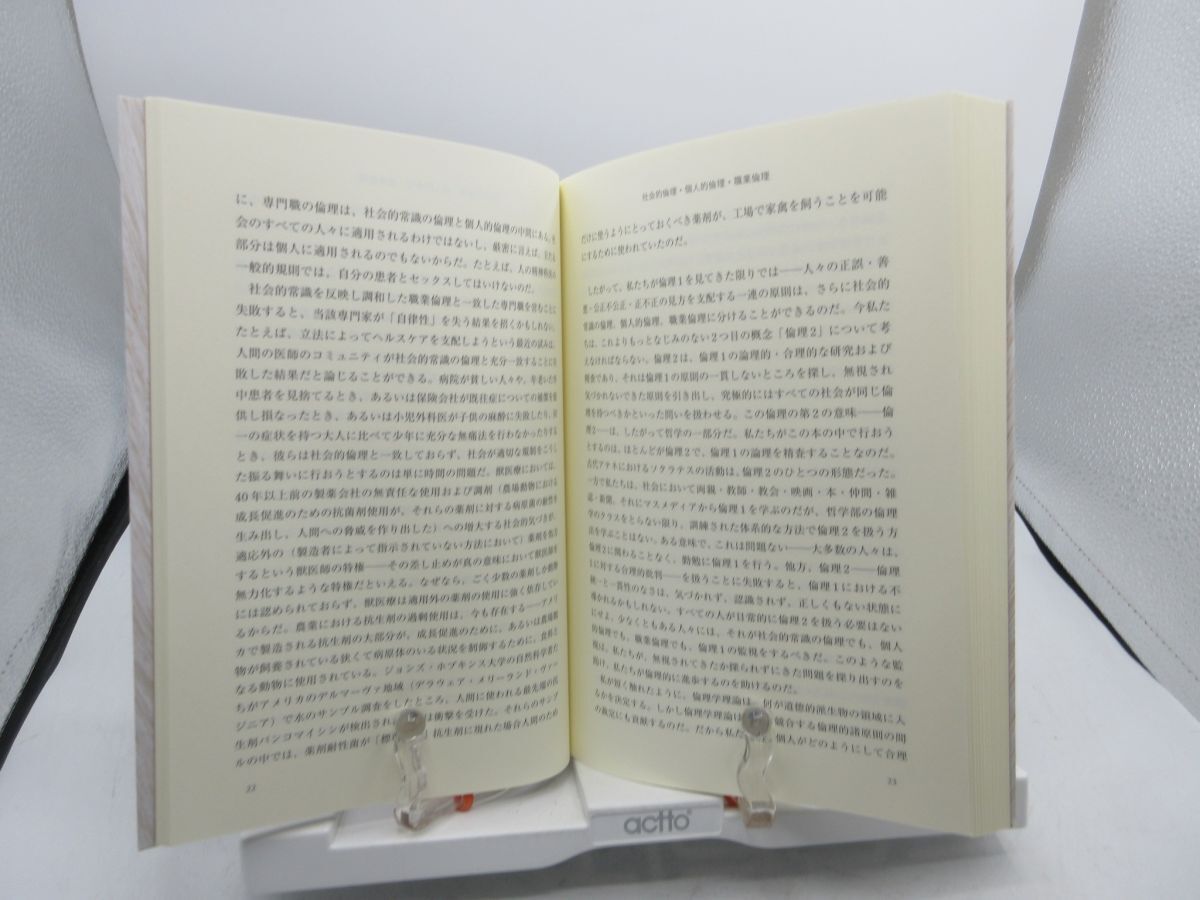 に、専門職の倫理は、社会的常識の倫理と個人的倫理の中間にある。
会のすべての人々に適用されるわけではないし、厳密に言えば、
部分は個人に適用されるのでもないからだ。たとえば、人の精神
一般的規則では、自分の患者とセックスしてはいけないのだ。
社会的常識を反映し調和した職業倫理と一致した専門職を営むことに
失敗すると、当該専門家が「自律性」を失う結果を招くかもしれない。
たとえば、立法によってヘルスケアを支配しようという最近の試みは、
人間の医師のコミュニティが社会的常識の倫理と充分一致することに
敗した結果だと論じることができる。病院が貧しい人々や、年老いた
中患者を見捨てるとき、あるいは保険会社が既往症についての補償を
供し損なったとき、あるいは小児外科医が子供の麻酔に失敗したり、
一の症状を持つ大人に比べて少年に充分な無痛法を行わなかったりする
とき、彼らは社会的倫理と一致しておらず、社会が適切な規制をこうし
た振る舞いに行おうとするのは単に時間の問題だ。獣医療においては、
40年以上前の製薬会社の無責任な使用および調剤（農場動物における
成長促進のための抗菌剤使用が、それらの薬剤に対する病原菌の耐性を
生み出し、人間への脅威を作り出した）への増大する社会的気づきが、
適応外の（製造者によって指示されていない方法において）薬剤を処方
するという獣医師の特権——その差し止めが真の意味において獣医師を
無力化するような特権だといえる。なぜなら、ごく少数の薬剤しか動物
には認められておらず、獣医療は適用外の薬剤の使用に強く依存してい
るからだ。農業における抗生剤の過剰使用は、今も存在する——アメリ
カで製造される抗生剤の大部分が、成長促進のために、あるいは農場動
物が飼養されている狭くて病原体のいる状況を制御するために、食料と
なる動物に使用されている。ジョンズ・ホプキンス大学の自然科学者た
ちがアメリカのデルマーヴァ地域（デラウェア・メリーランド・ヴァー
ジニア）で水のサンプル調査をしたところ、人間に使われる最先端の抗
生剤バンコマイシンが検出され は衝撃を受けた。それらのサンプ
ルの中では、薬剤耐性菌が「標 抗生剤に現れた場合人間のため
22
社会的倫理・個人的倫理・職業倫理
だけに使うようにとっておくべき薬剤が、工場で家禽を飼うことを可能
にするために使われていたのだ。
したがって、私たちが倫理1を見てきた限りでは——人々の正誤・善
悪・公正不公正・正不正の見方を支配する一連の原則は、さらに社会的
常識の倫理、個人的倫理、職業倫理に分けることができるのだ。今私た
ちは、これよりもっとなじみのない2つ目の概念「倫理2」について考
えなければならない。倫理2は、倫理1の論理的・合理的な研究および
検査であり、それは倫理1の原則の一貫しないところを探し、無視され
気づかれないできた原則を引き出し、究極的にはすべての社会が同じ倫
理を持つべきかといった問いを扱わせる。この倫理の第2の意味——倫
理2——は、したがって哲学の一部分だ。私たちがこの本の中で行おう
とするのは、ほとんどが倫理2で、倫理1の論理を精査することなのだ。
古代アテネにおけるソクラテスの活動は、倫理2のひとつの形態だった。
一方で私たちは、社会において両親・教師・教会・映画・本・仲間・雑
誌・新聞、それにマスメディアから倫理1を学ぶのだが、哲学部の倫理
学のクラスをとらない限り、訓練された体系的な方法で倫理2を扱う方
法を学ぶことはない。ある意味で、これは問題ない——大多数の人々は、
倫理2に関わることなく、勤勉に倫理1を行う。他方、倫理2——倫理
1に対する合理的批判——を扱うことに失敗すると、倫理1における不
統一と一貫性のなさは、気づかれず、認識されず、正しくもない状態に
導かれるかもしれない。すべての人が日常的に倫理2を扱う必要はない
にせよ、少なくともある人々には、それが社会的常識の倫理でも、個人
的倫理でも、職業倫理でも、倫理1の監視をするべきだ。このような監
視は、私たちが、無視されてきたか探られずにきた問題を探り出すのを
助け、私たちが倫理的に進歩するのを助けるのだ。
私が短く触れたように、倫理学理論は、何が道徳的派生物の領域に入
るかを決定する。しかし倫理学理論は 競合する倫理的諸原則の間
の裁定にも貢献するのだ。だから私た 個人がどのようにして合理
23
actto